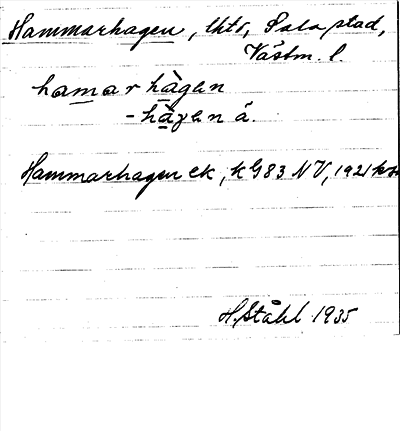 Hammarhagen, lht, Sala stad,
Västm. l.
hamarhàgen
-hàgen ä.
Hammarhagen ek, k G83 NV, 1921
H. Ståhl 1935